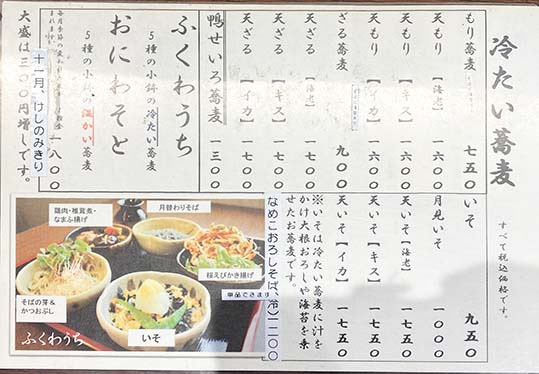 冷たい蕎麦
すべて税込価格です。
もり蕎麦 七五〇
天もり【海老】 一六〇〇
天もり【キス】 一六〇〇
天もり【イカ】 一六〇〇
ざる蕎麦 九〇〇
天ざる【海老】 一七〇〇
天ざる【キス】 一七〇〇
天ざる【イカ】 一七〇〇
鴨せいろ蕎麦 一三〇〇
ふくわうち
5種の小鉢の冷たい蕎麦
おにわそと
5種の小鉢の温かい蕎麦
一八〇〇
十一月、けしのみきり
大盛は三〇〇円増しです。
いそ 九五〇
月見いそ 一〇〇〇
天いそ【海老】 一七五〇
天いそ【キス】 一七五〇
天いそ【イカ】 一七五〇
※いそは冷たい蕎麦に汁を
かけ大根おろしや海苔を乗
せたお蕎麦です。
なめこおろしそば(冷)一一〇〇
単品できます
鶏肉・椎茸煮・
なまふ揚げ
月替わりそば
桜えびかき揚げ
そばの芽&
かつおぶし
いそ
ふくわうち